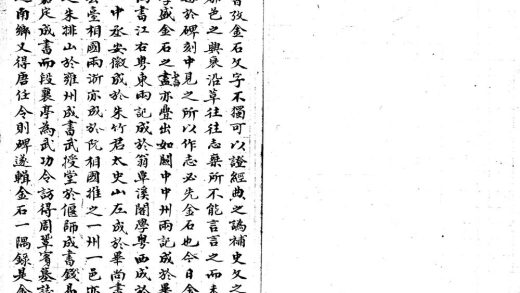 昔攷金石文字不獨可以證經典之譌補史文之
郡邑之興衰沿革往往志乘所不能言言之而未
每於碑刻中見之所以作志必先金石也今日金
學盛金石之書亦疊出如關中中州兩記成於畢
尚書江右粵東兩記成於翁覃溪閣學粤西成於
中丞安徽成於朱竹君太史山左成於畢尚書
雲臺相國兩浙亦成於阮相國推之一州一邑亦
之朱排山於雍州成書武授堂於偃師成書錢易
嘉定成書而段襄亭為武功令訪得周鞏賓墓誌
之南鄉又得唐任令則碑遂輯金石一隅錄是金